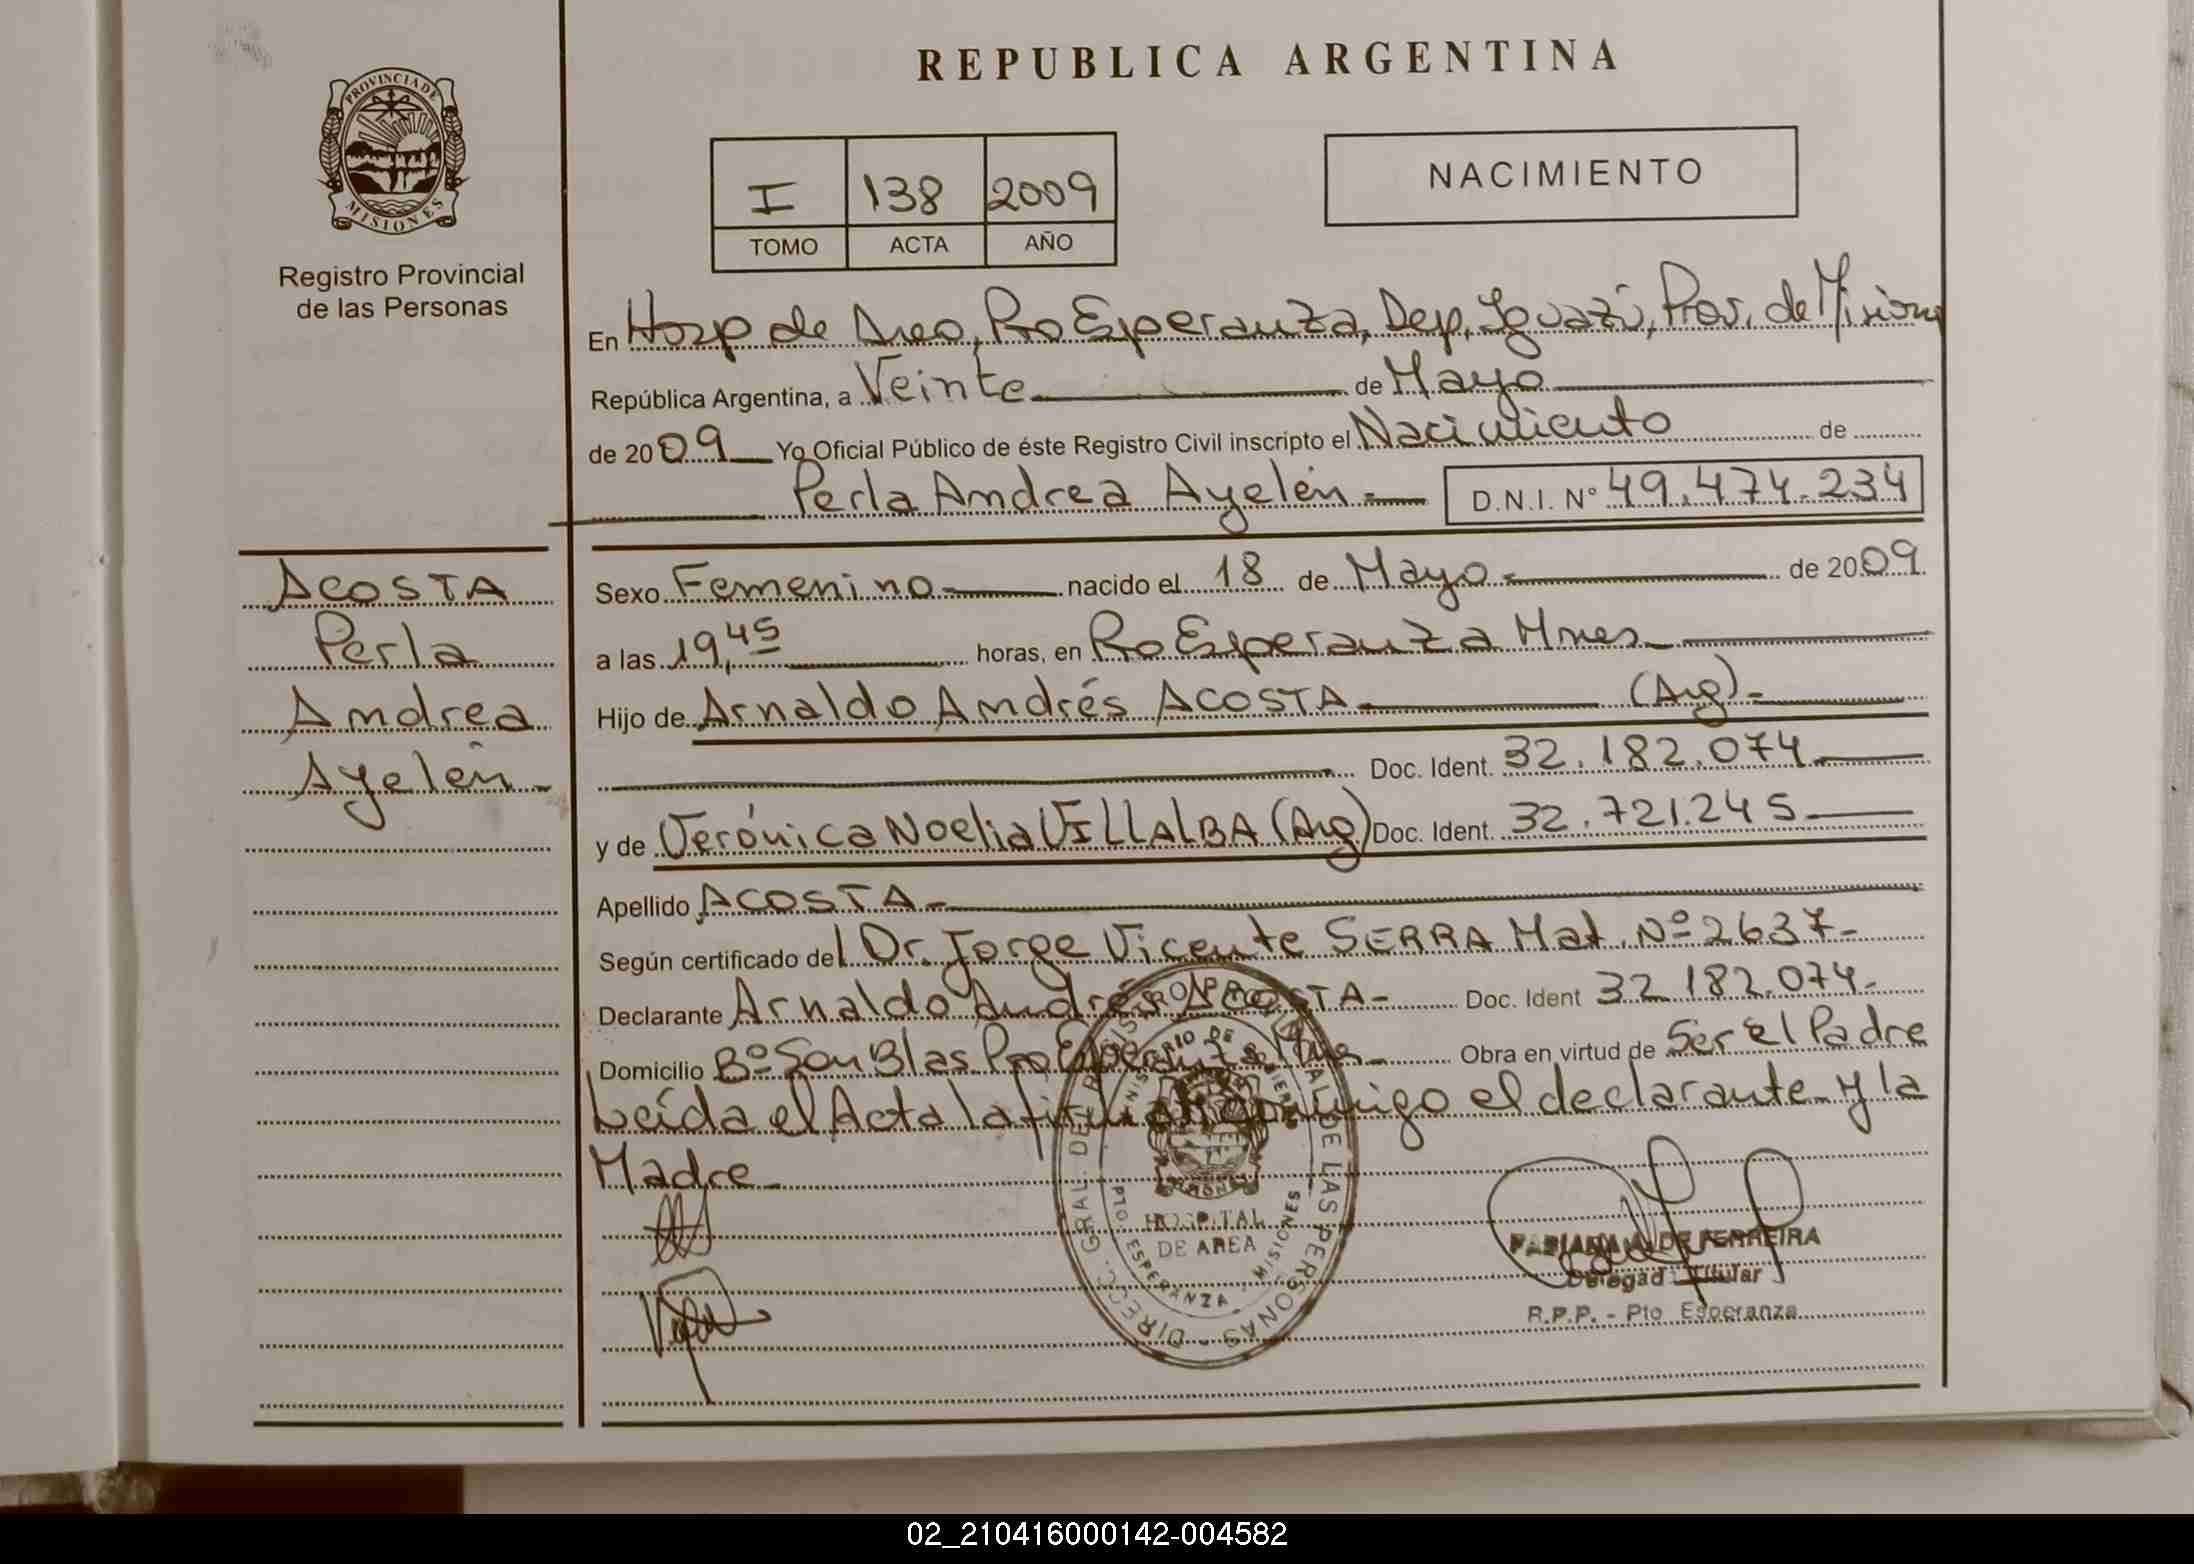 REPUBLICA ARGENTINA
PROVINCIA DE
MISIONES
Registro Provincial
de las Personas
I 138 2009
TOMO ACTA AÑO
NACIMIENTO
En Hosp de Area, Pto Esperanza, Dep, Iguazú, Prov. de Misiones
República Argentina, a Veinte de Mayo
de 2009 Yo Oficial Público de éste Registro Civil inscripto el Nacimiento de
Perla Andrea Ayelén D.N.I. Nº 49.474.234
ACOSTA
Perla
Andrea
Ayelén-
Sexo Femenino nacido el 18 de Mayo de 2009
a las 19,45 horas, en Pto Esperanza Mnes
Hijo de Arnaldo Andrés ACOSTA (Arg)
Doc. Ident. 32.182.074
y de Verónica Noelia VILLALBA (Arg) Doc. Ident. 32.721.245
Apellido ACOSTA
Según certificado del Dr. Jorge Vicente SERRA Mat. Nº 2637-
Declarante Arnaldo Andrés ACOSTA- Doc. Ident 32.182.074-
Domicilio Bº San Blas Pto Esperanza Mnes Obra en virtud de Ser el Padre
Leída el Acta la firman conmigo el declarante y la
Madre
DIRECC. GRAL. DEL REGISTRO PROVINCIAL DE LAS PERSONAS
MINISTERIO DE GOBIERNO
HOSPITAL
DE AREA
PTO ESPERANZA - MISIONES
FABIANA DE FERREIRA
Delegad Titular
R.P.P. - Pto Esperanza
02_210416000142-004582